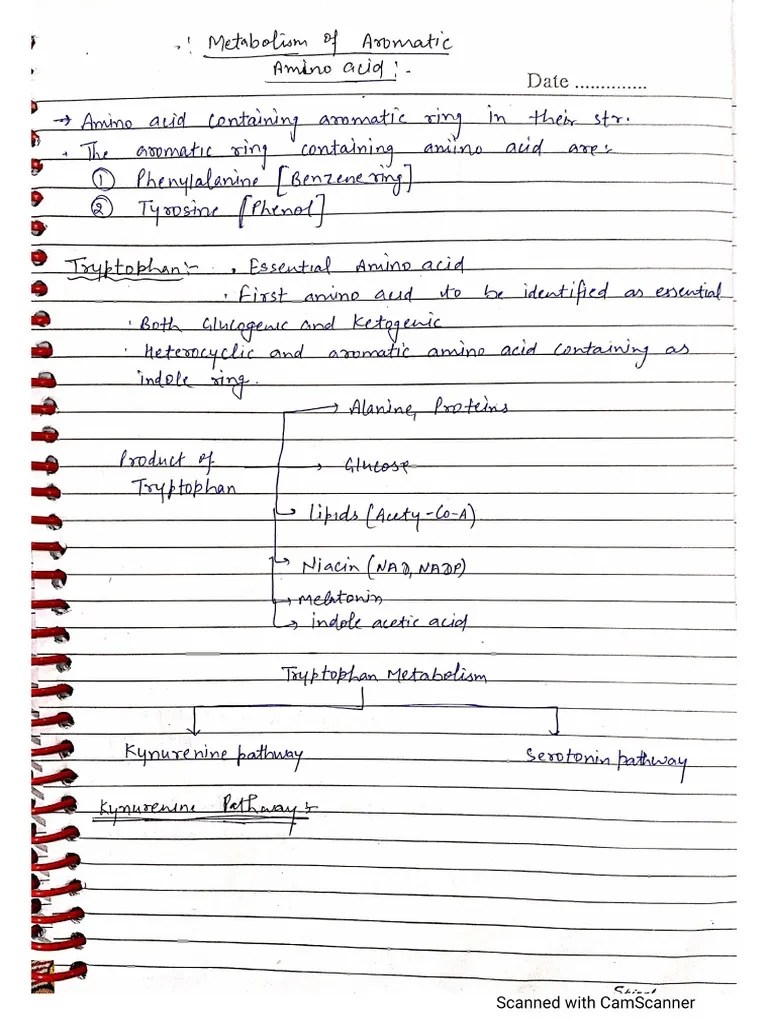 ∴ Metabolism of Aromatic
Amino acid :-
Date ..............
→ Amino acid containing aromatic ring in their str.
• The aromatic ring containing amino acid are:-
① Phenylalanine [Benzene ring]
② Tyrosine [Phenol]
Tryptophan:- • Essential Amino acid
• First amino acid to be identified as essential
• Both Glucogenic and Ketogenic
• Heterocyclic and aromatic amino acid containing as
indole ring.
→ Alanine, Proteins
Product of
Tryptophan
→ Glucose
→ Lipids (Acety-Co-A)
→ Niacin (NAD, NADP)
→ Melatonin
→ indole acetic acid
Tryptophan Metabolism
Kynurenine pathway
Serotonin pathway
Kynurenine Pathway:-
Scanned with CamScanner